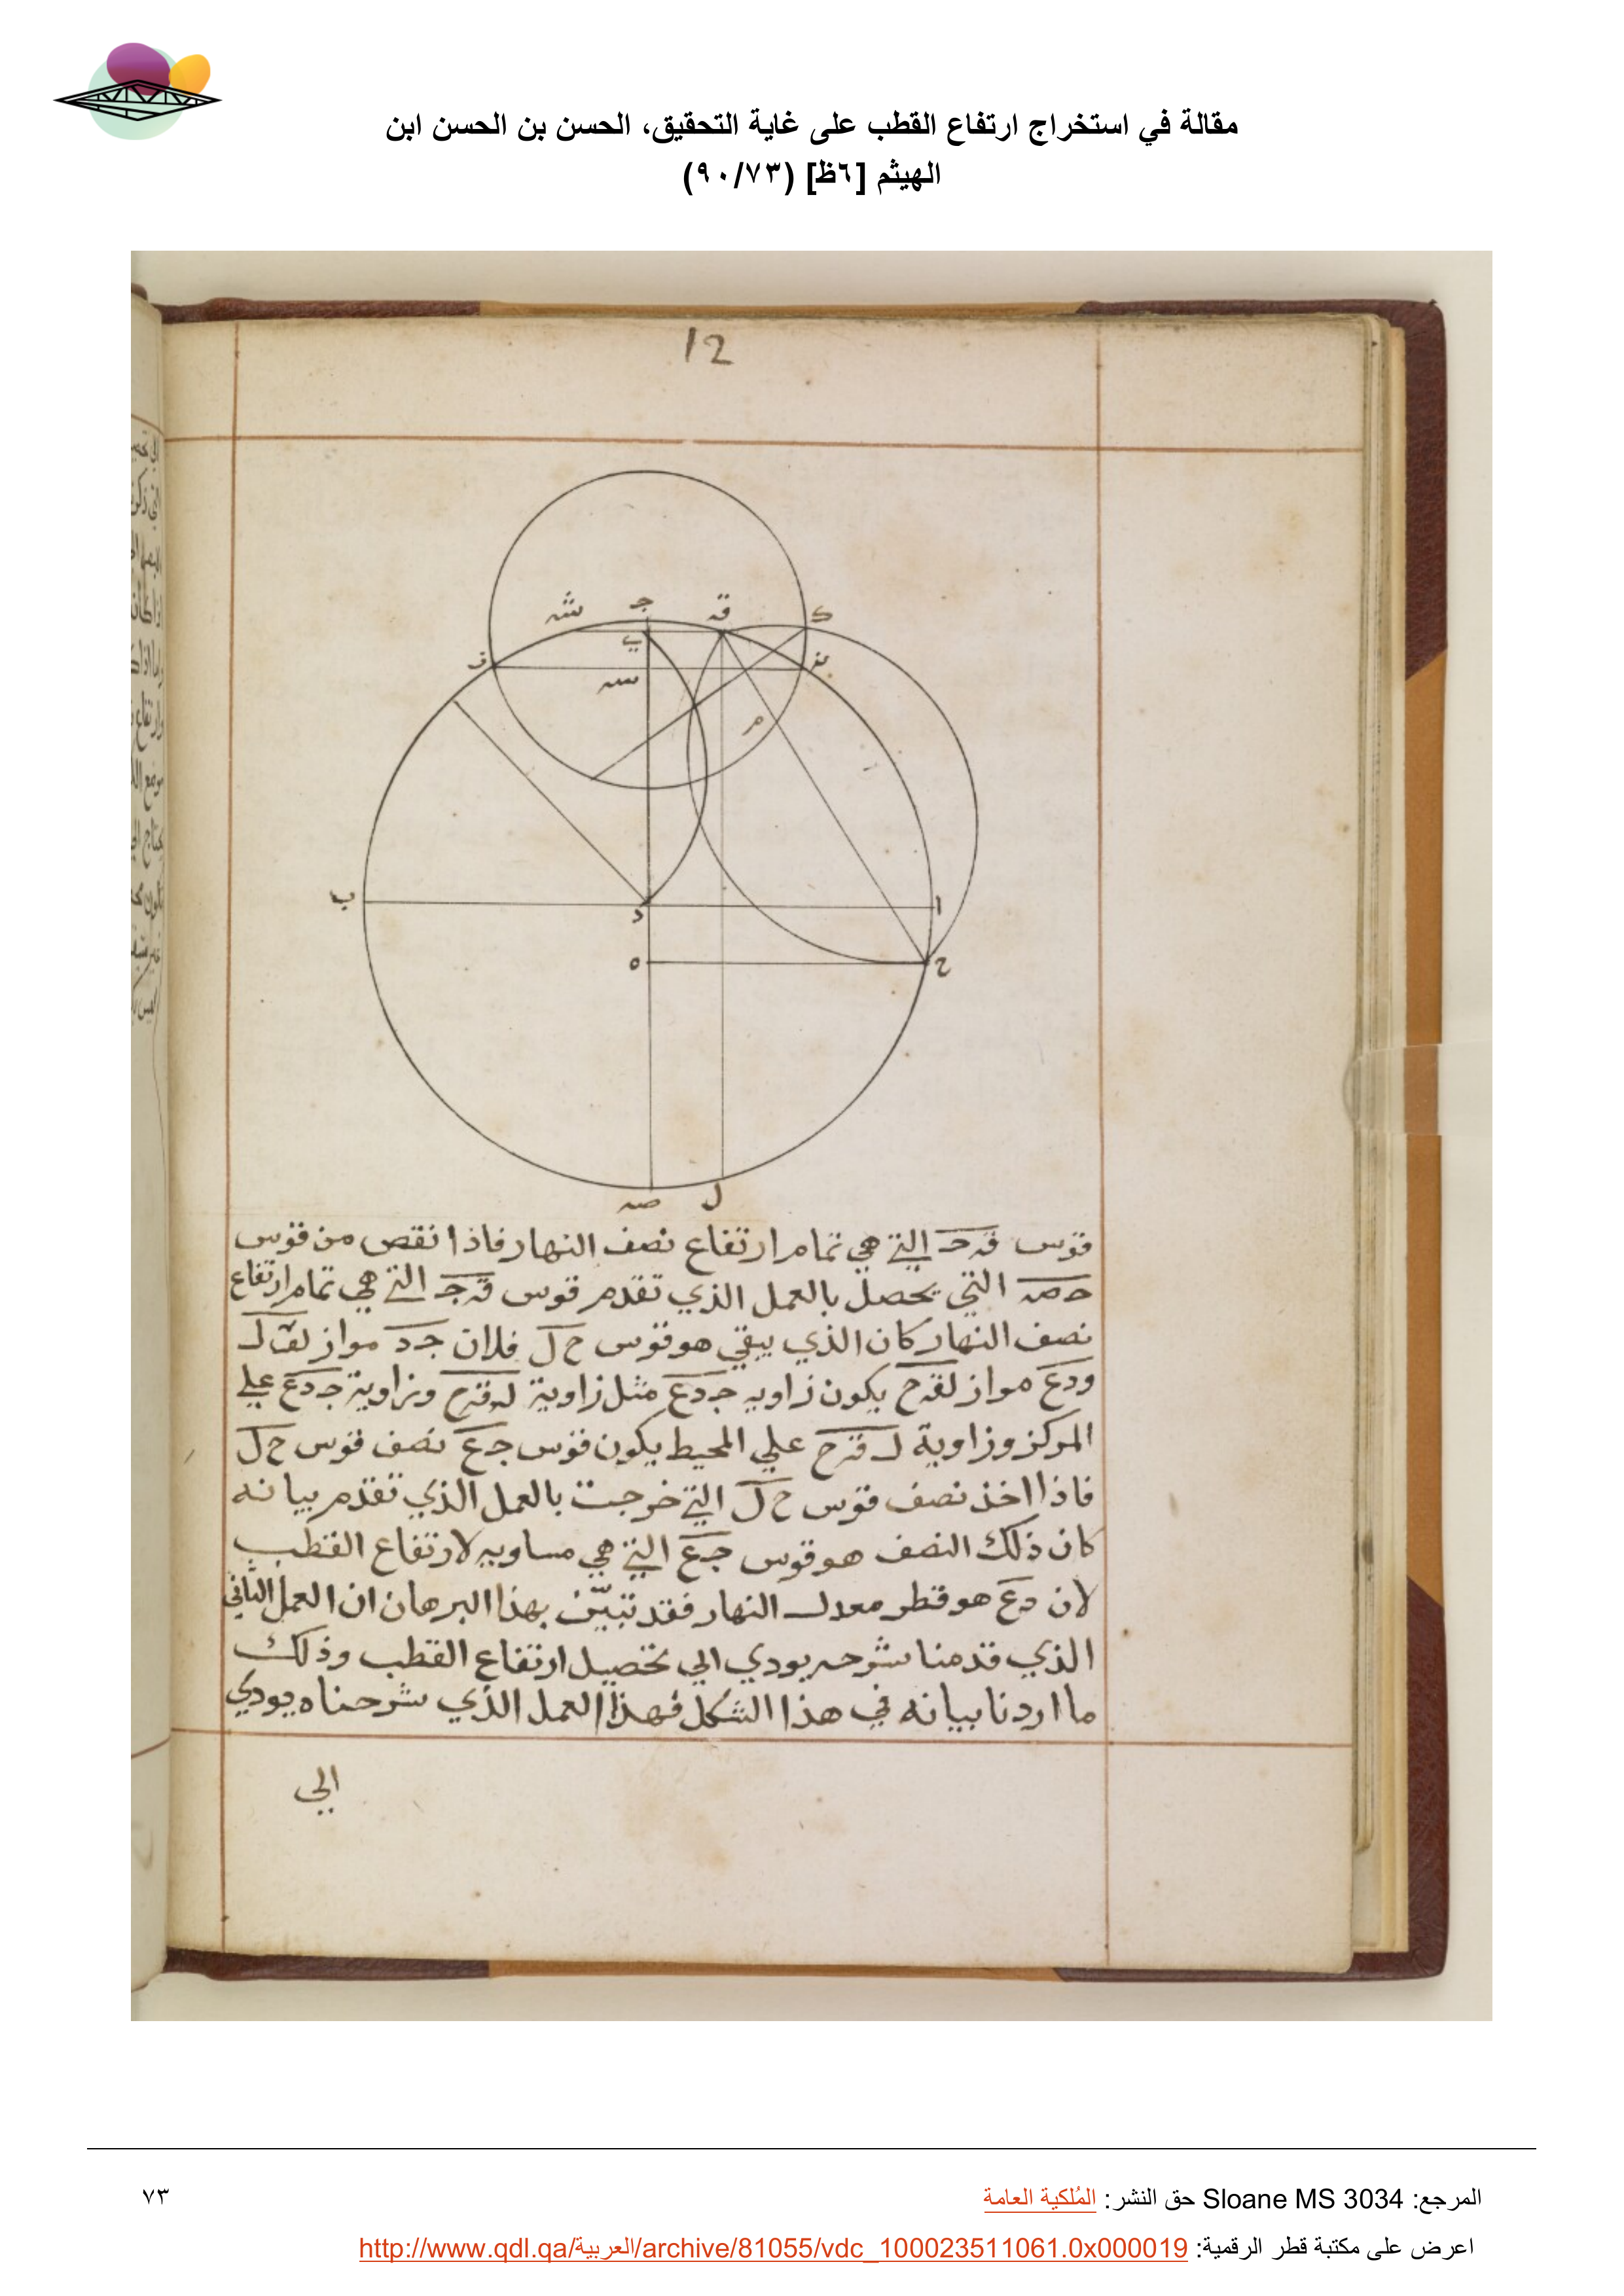 مقالة في استخراج ارتفاع القطب على غاية التحقيق، الحسن بن الحسن ابن
الهيثم [٦ظ] (٩٠/٧٣)
12
ش ج ق ك
ي
ز ن
س
م
ب د ا
ه ح
ص ل
قوس قـ جـ التي هي تمام ارتفاع نصف النهار فاذا نقص من قوس
حـ صـ التي يحصل بالعمل الذي تقدم قوس قـ جـ التي هي تمام ارتفاع
نصف النهار كان الذي يبقي هو قوس ح ل فلان جـ د مواز لق ل
ودع مواز لقح يكون زاويه جـ دع مثل زاوية ل قـ ح وزاوية جـ دع علي
المركز وزاوية ل قـ ح علي المحيط يكون قوس جـ ع نصف قوس ح ل
فاذا اخذ نصف قوس ح ل التي خرجت بالعمل الذي تقدم بيانه
كان ذلك النصف هو قوس جـ ع التي هي مساويه لارتفاع القطب
لان دع هو قطر معدل النهار فقد تبيّن بهذا البرهان ان العمل الثاني
الذي قدمنا شرحه يودي الي تحصيل ارتفاع القطب وذلك
ما اردنا بيانه في هذا الشكل فهذا العمل الذي شرحناه يودي
الي
المرجع: Sloane MS 3034 حق النشر: المُلكية العامة
٧٣
اعرض على مكتبة قطر الرقمية: http://www.qdl.qa/العربية/archive/81055/vdc_100023511061.0x000019